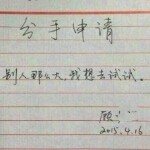 分手申请
别人那么大,我想去试试。
顾
2015.4.16